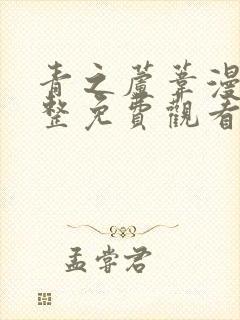 青之蘆葦漫
整免費觀看
孟嘗君